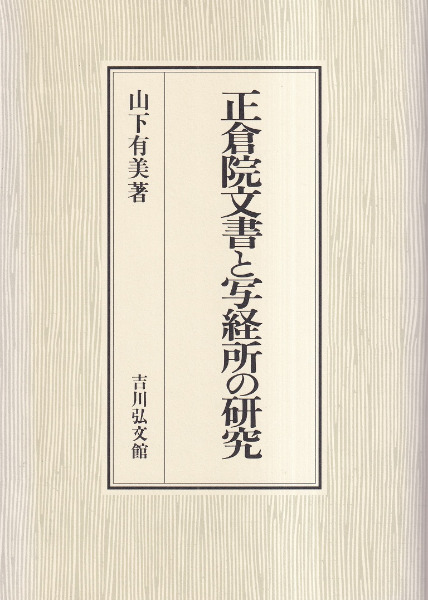 正倉院文書と写経所の研究
山下有美著
吉川弘文館